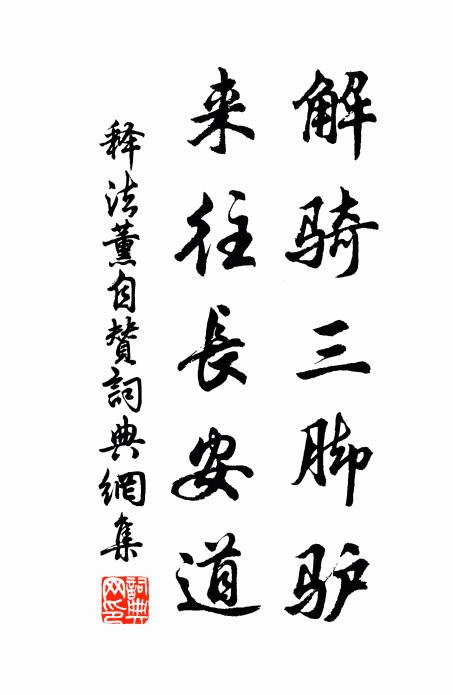 解骑三脚驴
来往長安道
释法薰自贊詞典網集
詞典网印